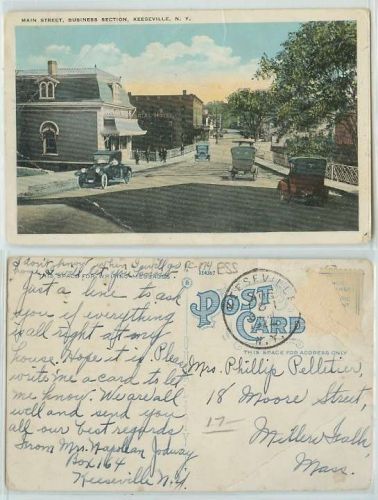 MAIN STREET, BUSINESS SECTION, KEESEVILLE, N. Y.
I don't know when I will go
THIS SPACE FOR WRITING MESSAGES
Just a line to ask
you if everything
is all right at my
house. Hope it is. Please
write me a card to let
me know. We are all
well and send you
all our best regards
From Mrs. Napolean
Box 164
Keeseville N.Y.
114367
R-174 ESS
POST CARD
KEESEVILLE
N.Y.
THIS SPACE FOR ADDRESS ONLY
Mrs. Phillip Pelletier,
18 Moore Street,
17-
Millers Falls,
Mass.